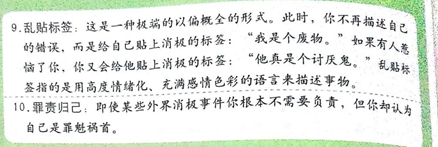 9.乱贴标签：这是一种极端的以偏概全的形式。此时，你不再描述自己
的错误，而是给自己贴上消极的标签：“我是个废物。”如果有人惹
恼了你，你又会给他贴上消极的标签：“他真是个讨厌鬼。”乱贴标
签指的是用高度情绪化、充满感情色彩的语言来描述事物。
10.罪责归己：即使某些外界消极事件你根本不需要负责，但你却认为
自己是罪魁祸首。